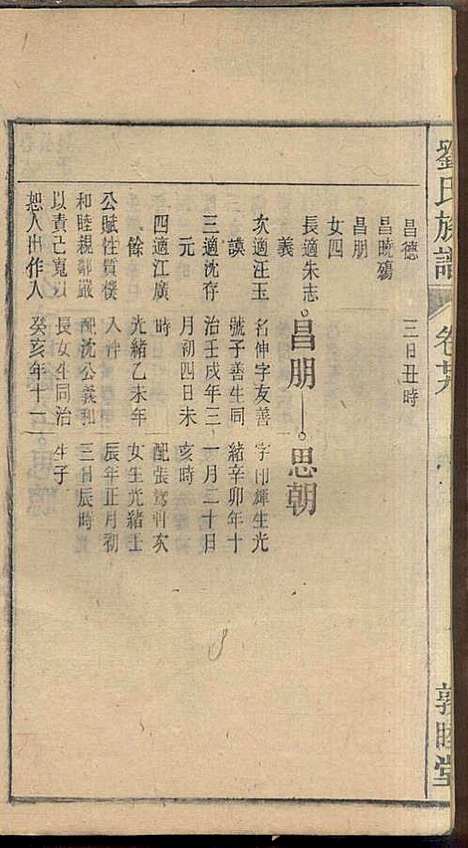 劉氏族譜 卷廿六 敦睦堂
昌德
昌曉殤
昌朋
女四
長適朱志
義
次適汪玉
謨
三適沈存
元
四適江廣
餘
公賦性質樸
和睦親鄰嚴
以責己寬以
恕人出作入
三日丑時
昌朋
名伸字友善
號子善生同
治壬戌年三
月初四日未
時
光緒乙未年
入泮
配沈公義和
長女生同治
癸亥年十一
思朝
輝生光
緒辛卯年十
一月二十日
亥時
配張駕軒次
女生光緒壬
辰年正月初
三日辰時
生子